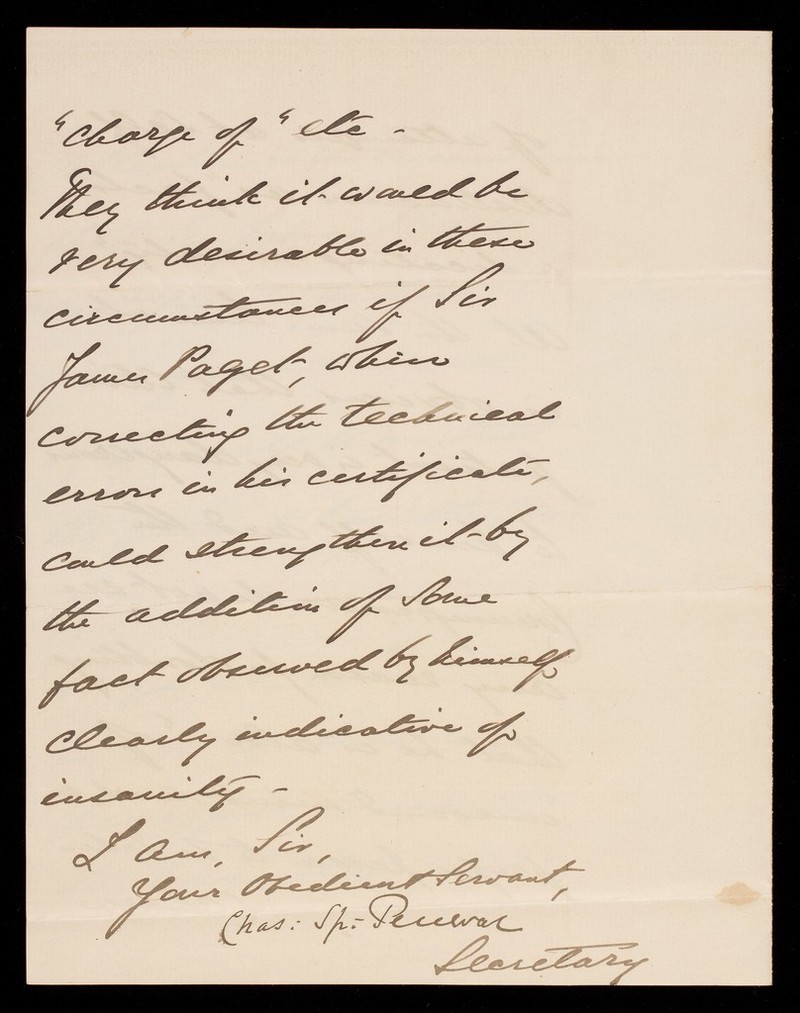 "charge of" etc -
They think it would be
very desirable in these
circumstances if Sir
James Paget, when
correcting the technical
errors in his certificate,
could strengthen it by
the addition of some
fact observed by himself
clearly indicative of
insanity -
I am, Sir,
Your Obedient Servant,
Chas: Sp: Perceval
Secretary